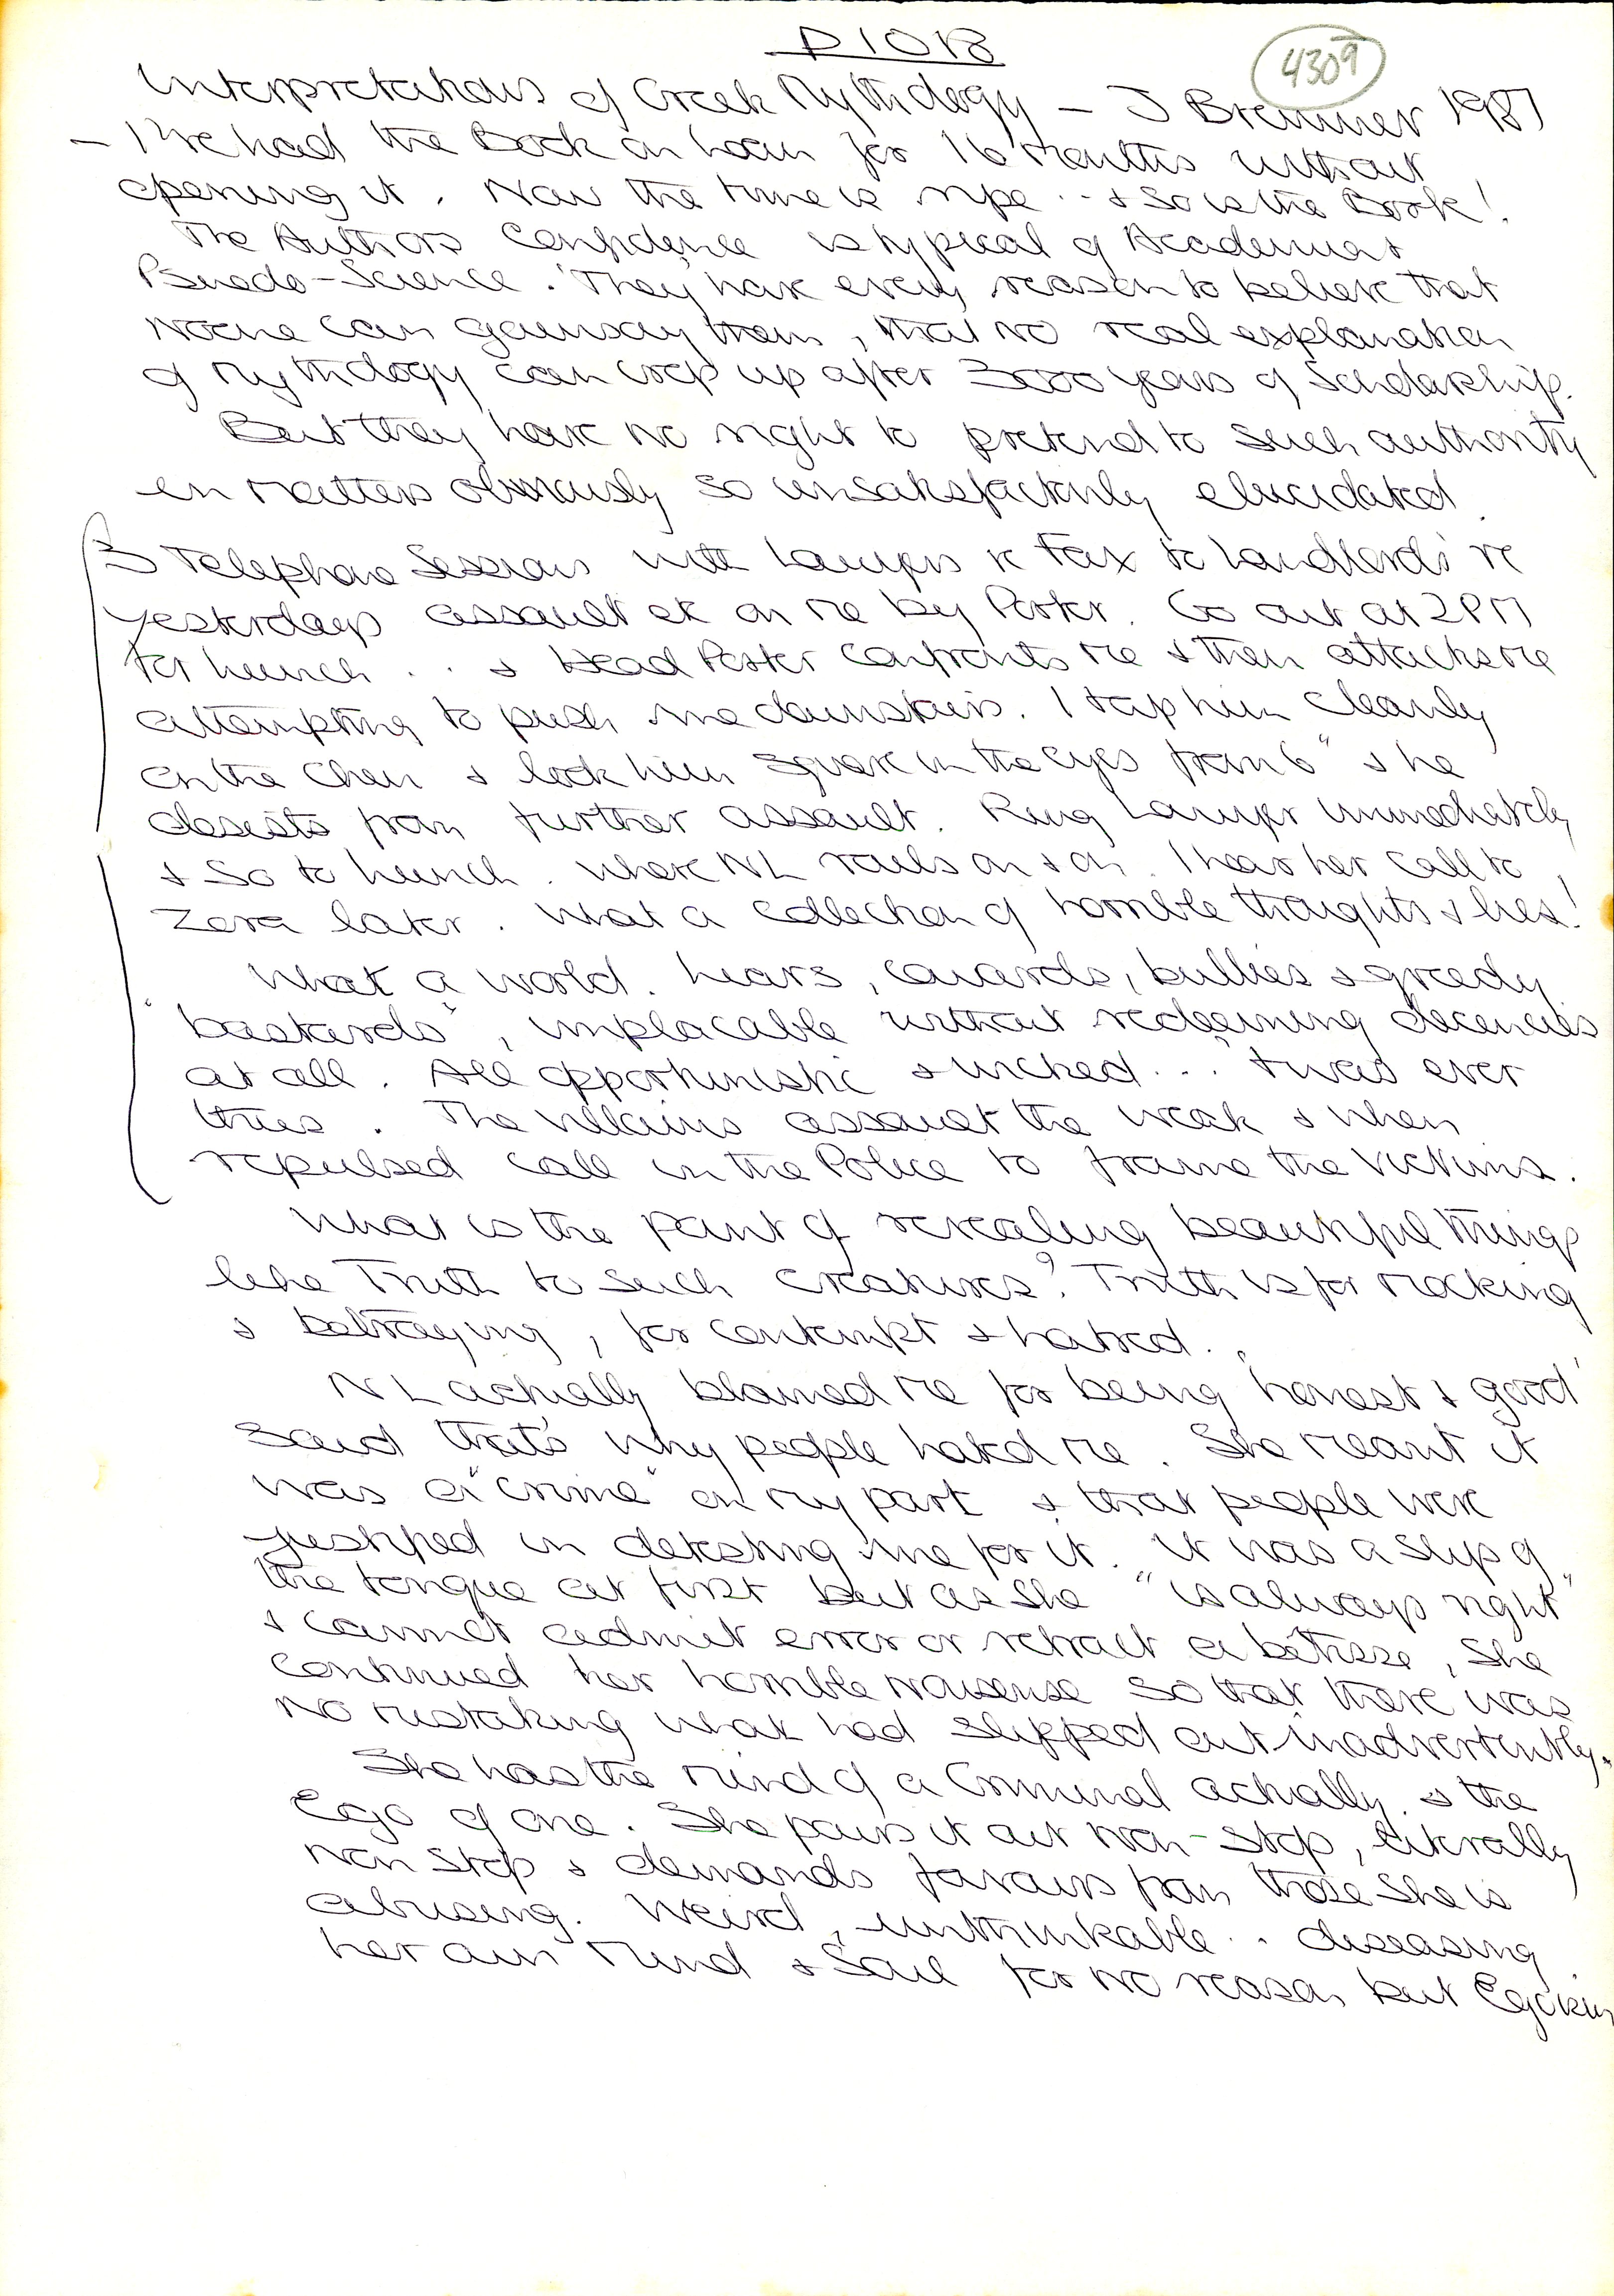 D10B
4309
Interpretations of Greek Mythology - J Bremmer 1987
- I've had the Book on loan for 16 months without
opening it. Now the time is ripe .. & so is the Book!
The Authors confidence is typical of Academia &
Psuedo-Science. They have every reason to believe that
noone can gainsay them, that no real explanation
of Mythology can crop up after 3000 years of Scholarship.
But they have no right to pretend to such authority
in matters obviously so unsatisfactorily elucidated.
3 Telephone Sessions with Lawyers re Fax to Landlords re
yesterdays assault etc on me by Porter. Go out at 2PM
for lunch .. & Head Porter confronts me & then attacks me
attempting to push me downstairs. I tap him cleanly
on the chin & look him square in the eyes from 6" & he
desists from further assault. Ring Lawyer immediately
& so to lunch. Where NL rails on & on. I hear her call to
Zora later. What a collection of horrible thoughts & lies!
What a world. Liars, cowards, bullies & greedy
bastards", implacable without redeeming decencies
at all. All opportunistic & wicked... 'twas ever
thus. The villains assault the weak & when
repulsed call in the Police to frame the victims.
What is the point of revealing beautiful things
like Truth to such creatures? Truth is for mocking
& betraying, for contempt & hatred.
NL actually blamed me for being honest & good'
Said that's why people hated me. She meant it
was a "crime" on my part & that people were
justified in detesting me for it. It was a slip of
the tongue at first but as she "is always right"
& cannot admit error or retract a bêtise, she
continued her horrible nonsense so that there was
no mistaking what had slipped out inadvertently.
She has the mind of a Criminal actually & the
Ego of one. She pours it out non-stop, literally
non stop & demands favours from those she is
abusing. Weird, unthinkable .. diseasing
her own mind & Soul for no reason but Egoism